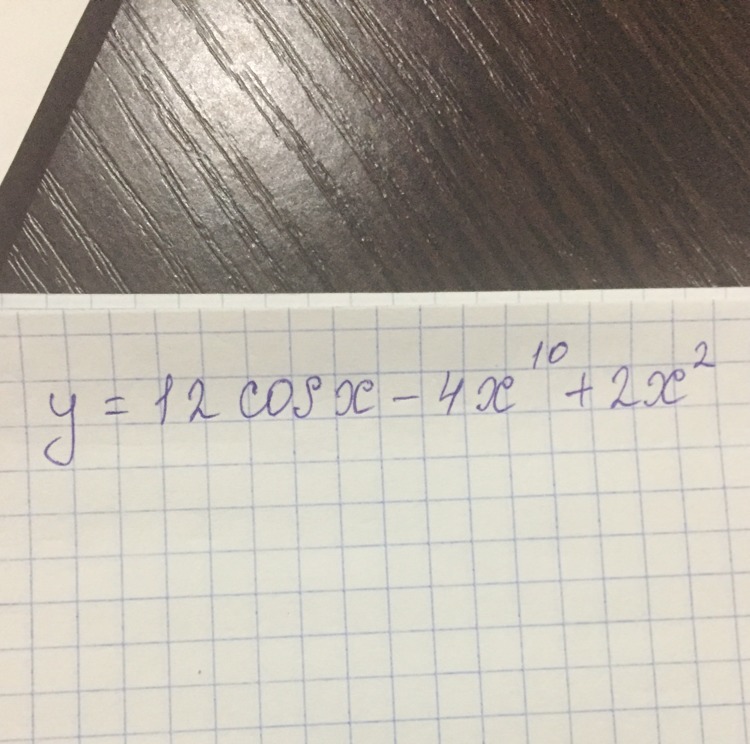 y = 12 cos x - 4x^10 + 2x^2